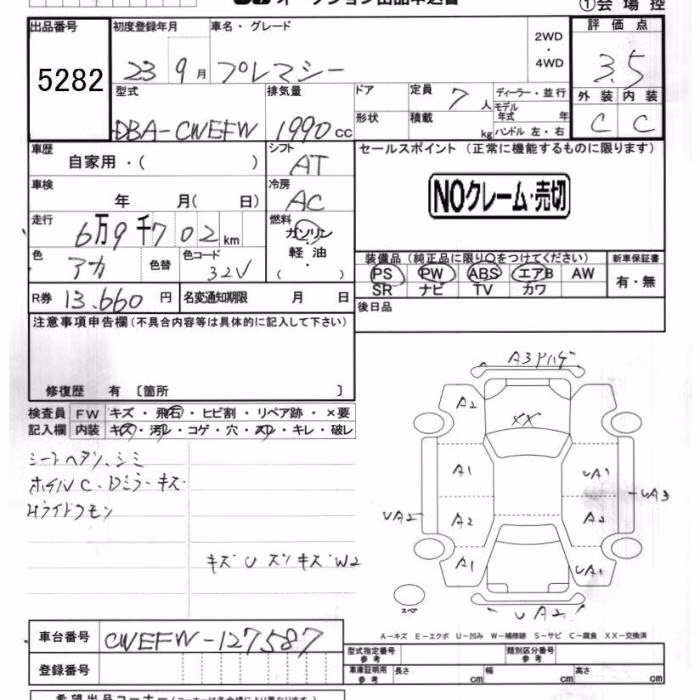 オークション出品申込書
①会場控
出品番号 5282
初度登録年月 23 9月
車名・グレード プレマシー
2WD・4WD
評価点 3.5
型式 DBA-CWEFW
排気量 1990cc
ドア
形状
定員 7人
積載 kg
ディーラー・並行
モデル年式 年式
ハンドル 左・右
外装 内装
C C
車歴 自家用・( )
シフト AT
セールスポイント (正常に機能するものに限ります)
NOクレーム・売切
車検 年 月( 日)
冷房 AC
走行 6万9千702km
燃料 ガソリン 軽油 ( ・ )
色 アカ 色替
色コード 32V
装備品(純正品に限り○をつけてください)
PS PW ABS エアB AW
SR ナビ TV カワ
新車保証書 有・無
R券 13.660円
名変通知期限 月 日
後日品
注意事項申告欄(不具合内容等は具体的に記入して下さい)
修復歴 有 〔箇所 〕
検査員記入欄
FW キズ・飛石・ヒビ割・リペア跡・×要
内装 キズ・汚レ・コゲ・穴・スレ・キレ・破レ
シートヘタリ、シミ
ホイルC・Dミラーキズ
キズU ズリキズW2
A3
A2
XX
A1
UA1
UA2
A2
A2
UA3
A1
UA1
UA2
スペ
A-キズ E-エクボ U-凹み W-補修跡 S-サビ C-腐食 XX-交換済
車台番号 CWEFW-127587
登録番号
型式指定番号 参考
類別区分番号 参考
車庫証明用 参考
長さ cm 幅 cm 高さ cm
希望出品コーナー